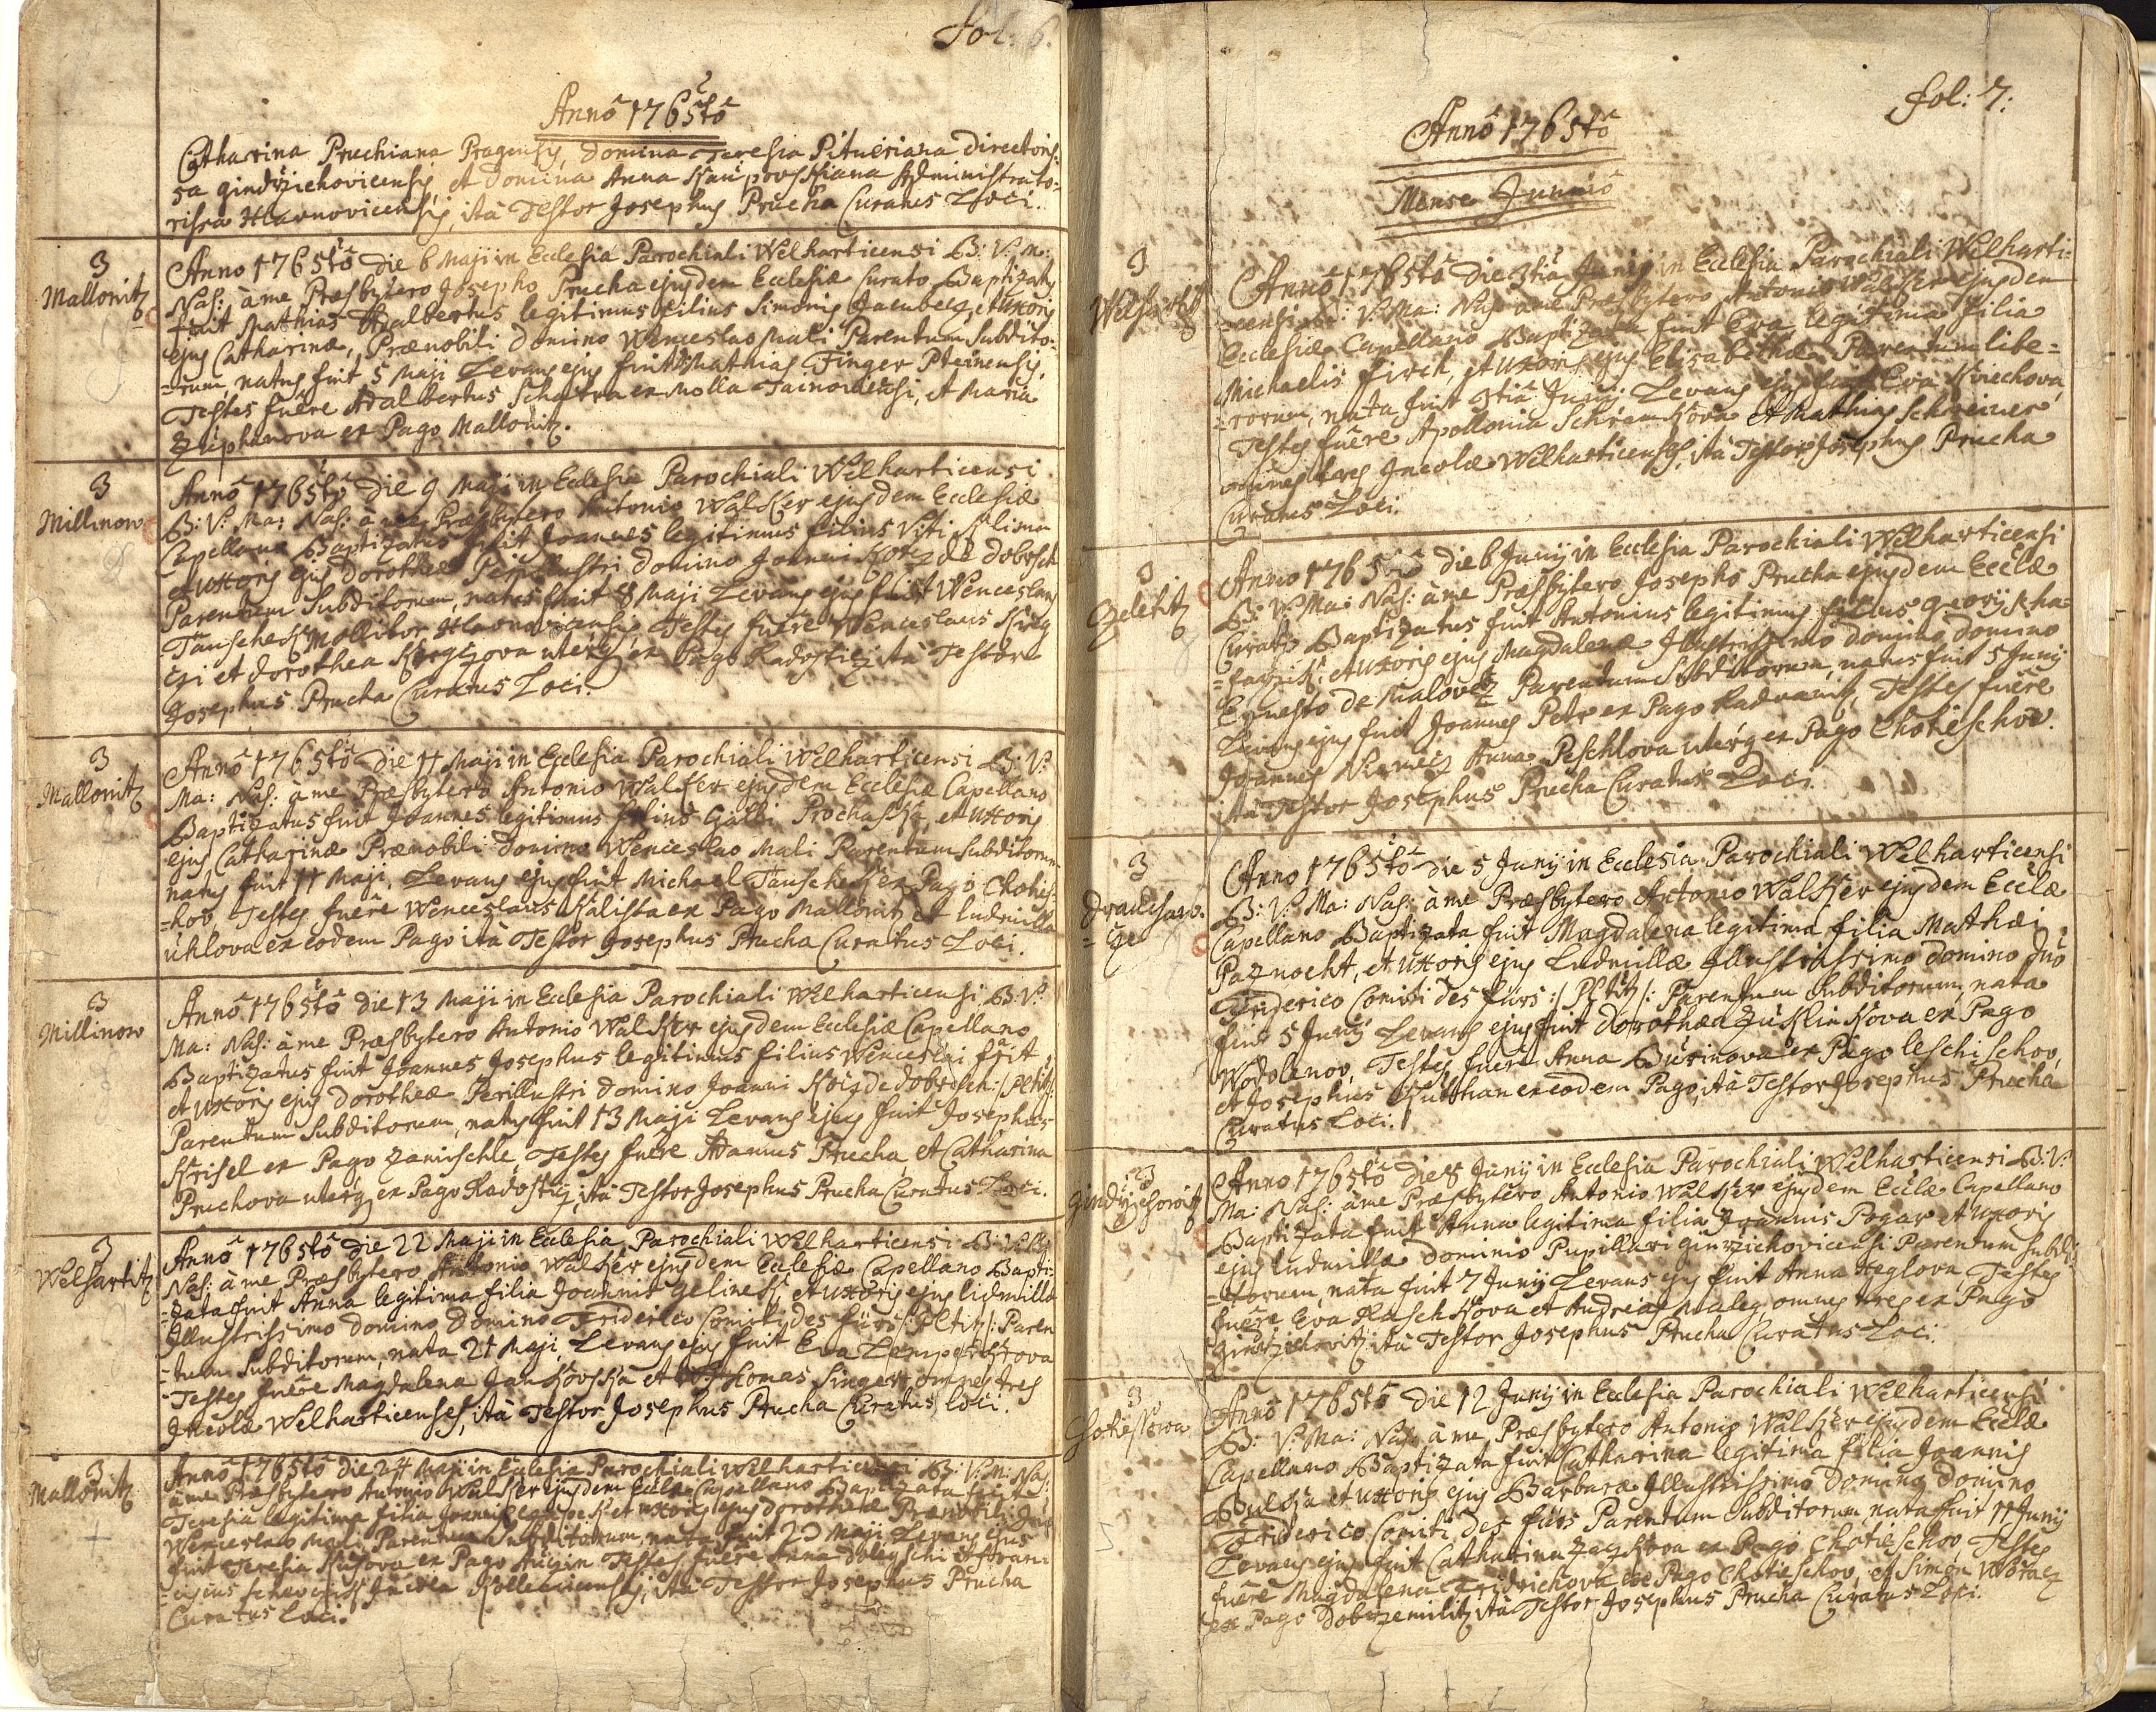 fol: 6.
Anno 1765to
Catharina Pruchiana Pragensis, Domina Teresia Pitneriana directoris:
sa gindrzichovicensis, et Domina Anna Administrato:
rissa Hlavnovicensis, ita Testor Josephus Prucha Curatus Loci.
3
Mallonitz
Anno 1765to die 6 Maji in Ecclesia Parochiali Welharticensi B: V: M:
Nas: à me Præsbytero Josepho Prucha ejusdem Ecclesiæ Curato Baptizatus
fuit Mathias Adalbertus legitimus filius Simonis et Uxoris
ejus Catharinæ, Prænobili Domino Wenceslao Mali Parentum Subdito:
=rum, natus fuit 5 Maji Levans ejus fuit Mathias Finger
Testes fuêre Adalbertus ex Molla et Maria
ex Pago Mallonitz.
3
Millinow
Anno 1765to die 9 Maji in Ecclesia Parochiali Welharticensi
B: V: Ma: Nas: à me Præsbytero Antonio Walker ejusdem Ecclesiæ
Capellano Baptizatus fuit Joannes legitimus filius Viti Klima
et Uxoris ejus Dorotheæ Perillustri Domino Joanni de Dobrsch
Parentum Subditorum, natus fuit 8 Maji Levans ejus fuit Wenceslaus
Tauschek Mollitor Testes fuêre Wenceslaus
et Dorothea uterq ex Pago Radostitz ita Testor
Josephus Prucha Curatus Loci.
3
Mallonitz
Anno 1765to die 11 Maji in Ecclesia Parochiali Welharticensi B: V:
Ma: Nas: à me Præsbytero Antonio Walker ejusdem Ecclesiæ Capellano
Baptizatus fuit Joannes legitimus filius Galli Prochaska, et Uxoris
ejus Catharinæ Prænobili Domino Wenceslao Mali Parentum Subditorum
natus fuit 11 Maji, Levans ejus fuit Michael Tauschek ex Pago Choties:
=kov Testes fuêre Wenceslaus Kalista ex Pago Mallonitz et Ludmilla
Uhlova ex eodem Pago ita Testor Josephus Prucha Curatus Loci.
3
Millinow
Anno 1765to die 13 Maji in Ecclesia Parochiali Welharticensi B: V:
Ma: Nas: à me Præsbytero Antonio Walker ejusdem Ecclesiæ Capellano
Baptizatus fuit Joannes Josephus legitimus filius Wenceslai
et Uxoris ejus Dorotheæ Perillustri Domino Joanni de Dobrsch :/ Pl: tit: /:
Parentum Subditorum, natus fuit 13 Maji Levans ejus fuit Josephus
Krisel ex Pago Zamischle, Testes fuêre Adamus Prucha, et Catharina
Pruchova uterq ex Pago Radostitz, ita Testor Josephus Prucha Curatus Loci.
3
Welhartitz
Anno 1765to die 22 Maji in Ecclesia Parochiali Welharticensi B: V: Ma:
Nas: à me Præsbytero Antonio Walker ejusdem Ecclesiæ Capellano Bapti:
=zata fuit Anna legitima filia Joannis Gelinek, et Uxoris ejus Ludmillæ
Illustrissimo Domino Domino Friderico Comiti des fürs :/ Pl: tit: /: Paren
=tum Subditorum, nata 21 Maji, Levans ejus fuit Eva
Testes fuêre Magdalena Jankovska et Thomas Singer omnes tres
Incolæ Welharticenses, ita Testor Josephus Prucha Curatus Loci.
3
Mallonitz
Anno 1765to die 24 Maji in Ecclesia Parochiali Welharticensi B: V: M: Nas:
à me Præsbytero Antonio Walker ejusdem Ecclæ Capellano Baptizata fuit
Teresia legitima filia Joannis et Uxoris ejus Dorotheæ Prænobili Dno
Wenceslao Mali Parentum Subditorum, nata fuit 23 Maji Levans ejus
fuit Teresia ex Pago Testes fuêre Anna et Franci
Incola ita Testor Josephus Prucha
Curatus Loci.
fol: 7:
Anno 1765to
Mense Junio
3
Welhartitz
Anno 1765to die 3tia Junij in Ecclesia Parochiali Welharti:
=censi B: V: Ma: Nas: à me Præsbytero Antonio Walker ejusdem
Ecclesiæ Capellano Baptizata fuit Eva legitima filia
Michaelis Firch, et Uxoris ejus Elisabethæ Parentum libe=
=rorum, nata fuit 3tia Junij Levans ejus fuit Eva
Testes fuêre Apollonia et Mathias Schreiner
omnes tres Incolæ Welharticenses, ita Testor Josephus Prucha
Curatus Loci.
3
Zeletitz
Anno 1765to die 6 Junij in Ecclesia Parochiali Welharticensi
B: V: Ma: Nas: à me Præsbytero Josepho Prucha ejusdem Ecclæ
Curato Baptizatus fuit Antonius legitimus filius Georij
et Uxoris ejus Magdalenæ Illustrissimo Domino Domino
Ernesto de Malovetz Parentum Subditorum, natus fuit 5 Junij
Levans ejus fuit Joannes Petr ex Pago Radvanitz, Testes fuêre
Joannes Anna Peschlova uterq ex Pago Chotieschov.
ita Testor Josephus Prucha Curatus Loci.
3
Anno 1765to die 5 Junij in Ecclesia Parochiali Welharticensi
B: V: Ma: Nas: à me Præsbytero Antonio Walker ejusdem Ecclæ
Capellano Baptizata fuit Magdalena legitima filia Matthæi
Paznocht, et Uxoris ejus Ludmillæ Illustrissimo Domino Dno
Friderico Comiti des fürs :/ Pl: tit: /: Parentum Subditorum, nata
fuit 5 Junij Levans ejus fuit Dorothea ex Pago
Wodolenov, Testes fuêre Anna Burinova ex Pago Leschischov,
et Josephus ex eodem Pago, ita Testor Josephus Prucha
Curatus Loci.
3
Anno 1765to die 8 Junij in Ecclesia Parochiali Welharticensi B: V:
Ma: Nas: à me Præsbytero Antonio Walker ejusdem Ecclæ Capellano
Baptizata fuit Anna legitima filia Joannis Pogar et Uxoris
ejus Ludmillæ Dominio Pupillari Parentum Subdi
=torum, nata fuit 7 Junij Levans ejus fuit Anna Testes
fuêre Eva et Andreas omnes tres ex Pago
ita Testor Josephus Prucha Curatus Loci.
3
Anno 1765to die 12 Junij in Ecclesia Parochiali Welharticensi
B: V: Ma: Nas: à me Præsbytero Antonio Walker ejusdem Ecclæ
Capellano Baptizata fuit Catharina legitima filia Joannis
et Uxoris ejus Barbaræ Illustrissimo Domino Domino
Friderico Comiti des fürs Parentum Subditorum, nata fuit 11 Junij
Levans ejus fuit Catharina ex Pago Chotieschov Testes
fuêre Magdalena Fridrichova ex Pago Chotieschov, et Simon Woracz
ex Pago Dobrzemilitz ita Testor Josephus Prucha Curatus Loci.